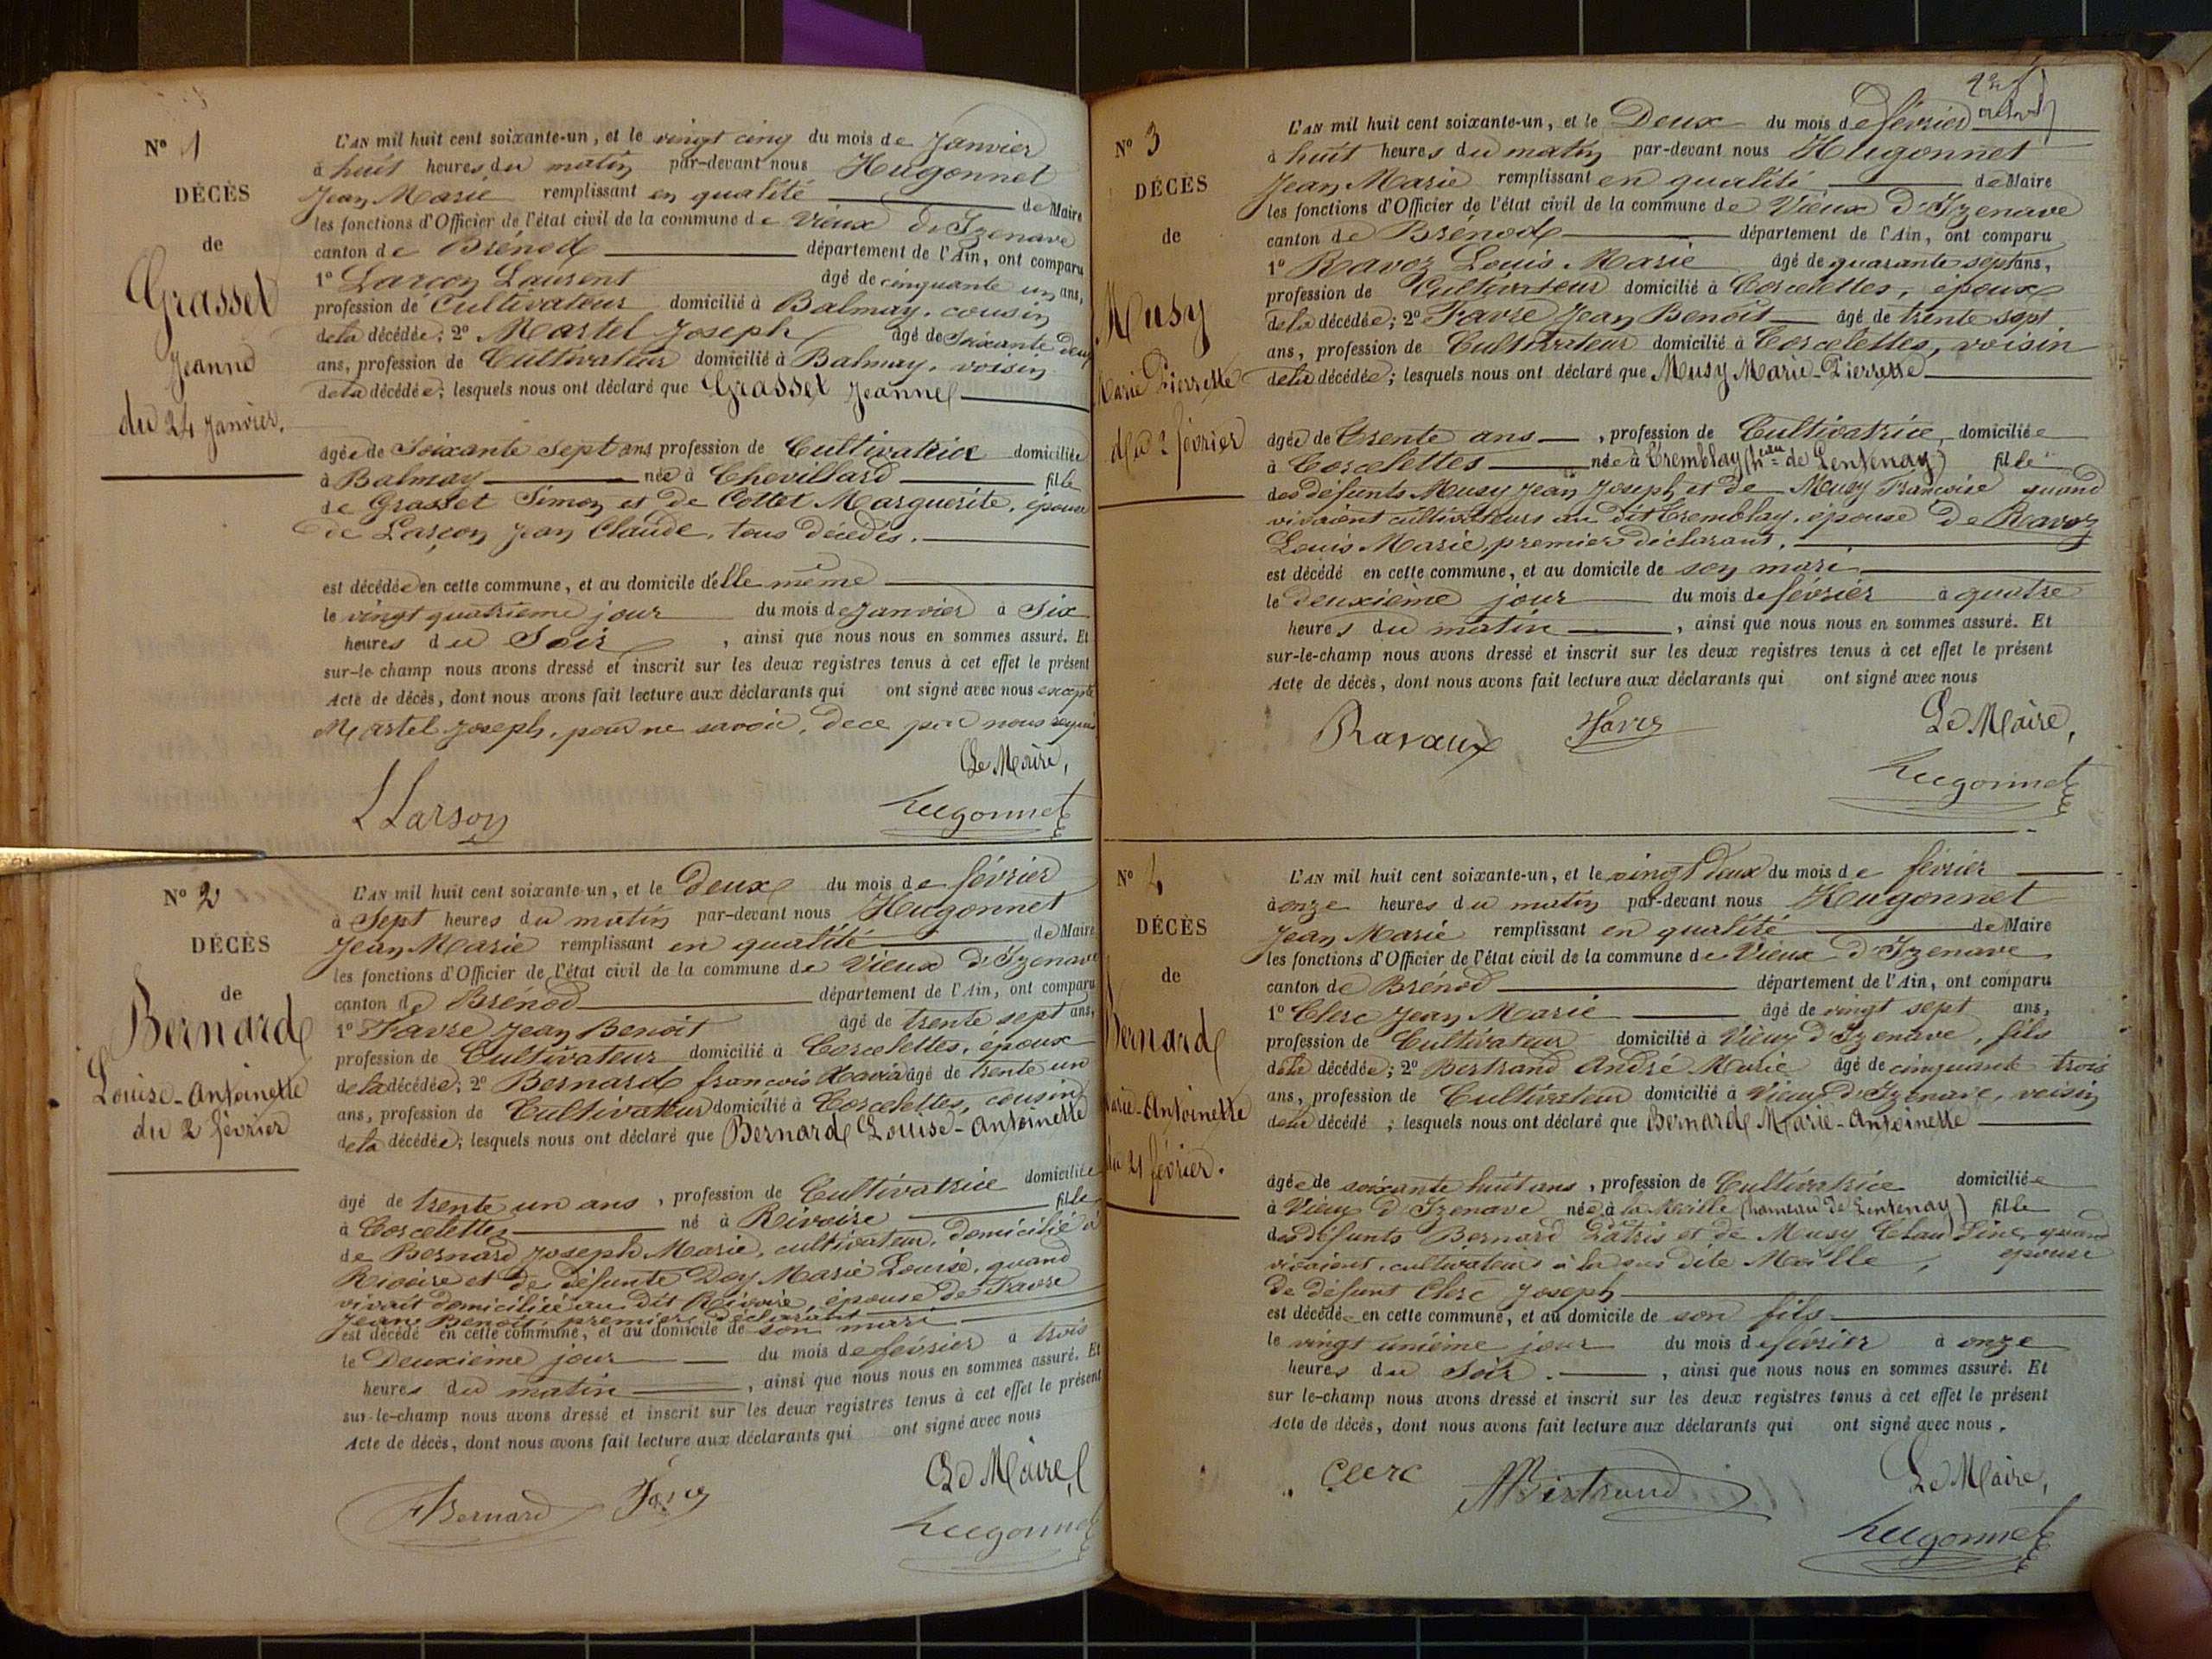 N° 1
DÉCÈS
de
Grasset
Jeanne
du 24 Janvier.
L'AN mil huit cent soixante-un, et le vingt cinq du mois de Janvier
à huit heures du matin par-devant nous Hugonnet
Jean Marie remplissant en qualité de Maire
les fonctions d'Officier de l'état civil de la commune de Vieux d'Izenave
canton de Brénod département de l'Ain, ont comparu
1° Larçon Laurent âgé de cinquante un ans,
profession de Cultivateur domicilié à Balmay, cousin
de la décédée; 2° Martel Joseph âgé de soixante deux
ans, profession de Cultivateur domicilié à Balmay, voisin
de la décédée; lesquels nous ont déclaré que Grasset Jeanne
âgée de Soixante sept ans profession de Cultivatrice domiciliée
à Balmay née à Chevillard fille
de Grasset Simon et de Cottet Marguerite, épouse
de Larçon Jean Claude, tous décédés.
est décédée en cette commune, et au domicile d'elle même
le vingt quatrième jour du mois de Janvier à Six
heures du Soir, ainsi que nous nous en sommes assuré. Et
sur-le-champ nous avons dressé et inscrit sur les deux registres tenus à cet effet le présent
Acte de décès, dont nous avons fait lecture aux déclarants qui ont signé avec nous excepté
Martel Joseph, pour ne savoir, de ce par nous requis
Le Maire,
L Larson
Hugonnet
N° 2
DÉCÈS
de
Bernard
Louise-Antoinette
du 2 février
L'AN mil huit cent soixante-un, et le Deux du mois de février
à Sept heures du matin par-devant nous Hugonnet
Jean Marie remplissant en qualité de Maire
les fonctions d'Officier de l'état civil de la commune de Vieux d'Izenave
canton de Brénod département de l'Ain, ont comparu
1° Favre Jean Benoit âgé de trente sept ans,
profession de Cultivateur domicilié à Corcelettes, époux
de la décédée; 2° Bernard françois Xavier âgé de trente un
ans, profession de Cultivateur domicilié à Corcelettes, cousin
de la décédée; lesquels nous ont déclaré que Bernard Louise-Antoinette
âgé de trente un ans, profession de Cultivatrice domiciliée
à Corcelettes né à Rivoire fille
de Bernard Joseph Marie, cultivateur, domicilié à
Rivoire et de défunte Doy Marie Louise, quand
vivait domiciliée au dit Rivoire, épouse de Favre
Jean Benoit, premier déclarant
est décédé en cette commune, et au domicile de son mari
le Deuxième jour du mois de février à trois
heures du matin, ainsi que nous nous en sommes assuré. Et
sur-le-champ nous avons dressé et inscrit sur les deux registres tenus à cet effet le présent
Acte de décès, dont nous avons fait lecture aux déclarants qui ont signé avec nous
Le Maire,
FBernard
Hugonnet
N° 3
DÉCÈS
de
Musy
Marie Pierrette
du 2 février
L'AN mil huit cent soixante-un, et le Deux du mois de février
à huit heures du matin par-devant nous Hugonnet
Jean Marie remplissant en qualité de Maire
les fonctions d'Officier de l'état civil de la commune de Vieux d'Izenave
canton de Brénod département de l'Ain, ont comparu
1° Ravoz Louis Marie âgé de quarante sept ans,
profession de Cultivateur domicilié à Corcelettes, époux
de la décédée; 2° Favre Jean Benoit âgé de trente sept
ans, profession de Cultivateur domicilié à Corcelettes, voisin
de la décédée; lesquels nous ont déclaré que Musy Marie-Pierrette
âgée de trente ans, profession de Cultivatrice domiciliée
à Corcelettes née à Tremblay (heau de Lentenay) fille
des défunts Musy Jean Joseph et de Musy Françoise quand
vivaient cultivateurs au dit Tremblay, épouse de Ravoz
Louis Marie, premier déclarant.
est décédé en cette commune, et au domicile de son mari
le deuxième jour du mois de février à quatre
heures du matin, ainsi que nous nous en sommes assuré. Et
sur-le-champ nous avons dressé et inscrit sur les deux registres tenus à cet effet le présent
Acte de décès, dont nous avons fait lecture aux déclarants qui ont signé avec nous
Ravaux
Favre
Le Maire,
Hugonnet
N° 4
DÉCÈS
de
Bernard
Marie-Antoinette
du 21 février.
L'AN mil huit cent soixante-un, et le vingt deux du mois de février
à onze heures du matin par-devant nous Hugonnet
Jean Marie remplissant en qualité de Maire
les fonctions d'Officier de l'état civil de la commune de Vieux d'Izenave
canton de Brénod département de l'Ain, ont comparu
1° Clerc Jean Marie âgé de vingt sept ans,
profession de Cultivateur domicilié à Vieux d'Izenave, fils
de la décédée; 2° Bertrand André Marie âgé de cinquante trois
ans, profession de Cultivateur domicilié à Vieux d'Izenave, voisin
de la décédé; lesquels nous ont déclaré que Bernard Marie-Antoinette
âgée de soixante huit ans, profession de Cultivatrice domiciliée
à Vieux d'Izenave née à la Meille (hameau de Lentenay) fille
des défunts Bernard et de Musy Claudine, quand
vivaient cultivateurs à la sus dite Meille, épouse
de défunt Clerc Joseph
est décédée en cette commune, et au domicile de son fils
le vingt unième jour du mois de février à onze
heures du Soir, ainsi que nous nous en sommes assuré. Et
sur le-champ nous avons dressé et inscrit sur les deux registres tenus à cet effet le présent
Acte de décès, dont nous avons fait lecture aux déclarants qui ont signé avec nous.
Clerc
Bertrand
Le Maire,
Hugonnet